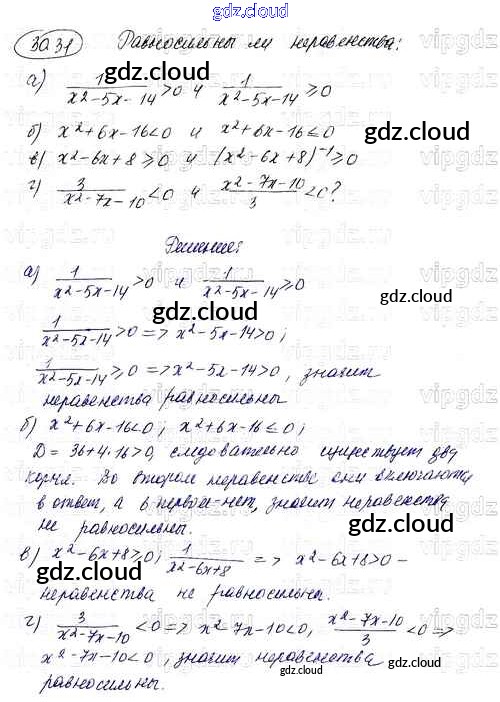 gdz.cloud
30.31 Равносильны ли неравенства:
а) 1/(x²-5x-14) >0 и 1/(x²-5x-14) ≥0
б) x²+6x-16<0 и x²+6x-16≤0
в) x²-6x+8≥0 и (x²-6x+8)⁻¹≥0
г) 3/(x²-7x-10) <0 и (x²-7x-10)/3 <0?
Решение:
а) 1/(x²-5x-14) >0 и 1/(x²-5x-14) ≥0
1/(x²-5x-14) >0 => x²-5x-14>0;
1/(x²-5x-14) ≥0 => x²-5x-14>0, значит
неравенства равносильны
б) x²+6x-16<0; x²+6x-16≤0;
D=36+4·16>0, следовательно существует два
корня. Во втором неравенстве они включаются
в ответ, а в первом-нет, значит неравенства
не равносильны.
в) x²-6x+8≥0; 1/(x²-6x+8) => x²-6x+8>0 -
неравенства не равносильны.
г) 3/(x²-7x-10) <0 => x²-7x-10<0, (x²-7x-10)/3 <0 =>
x²-7x-10<0, значит неравенства
равносильны.